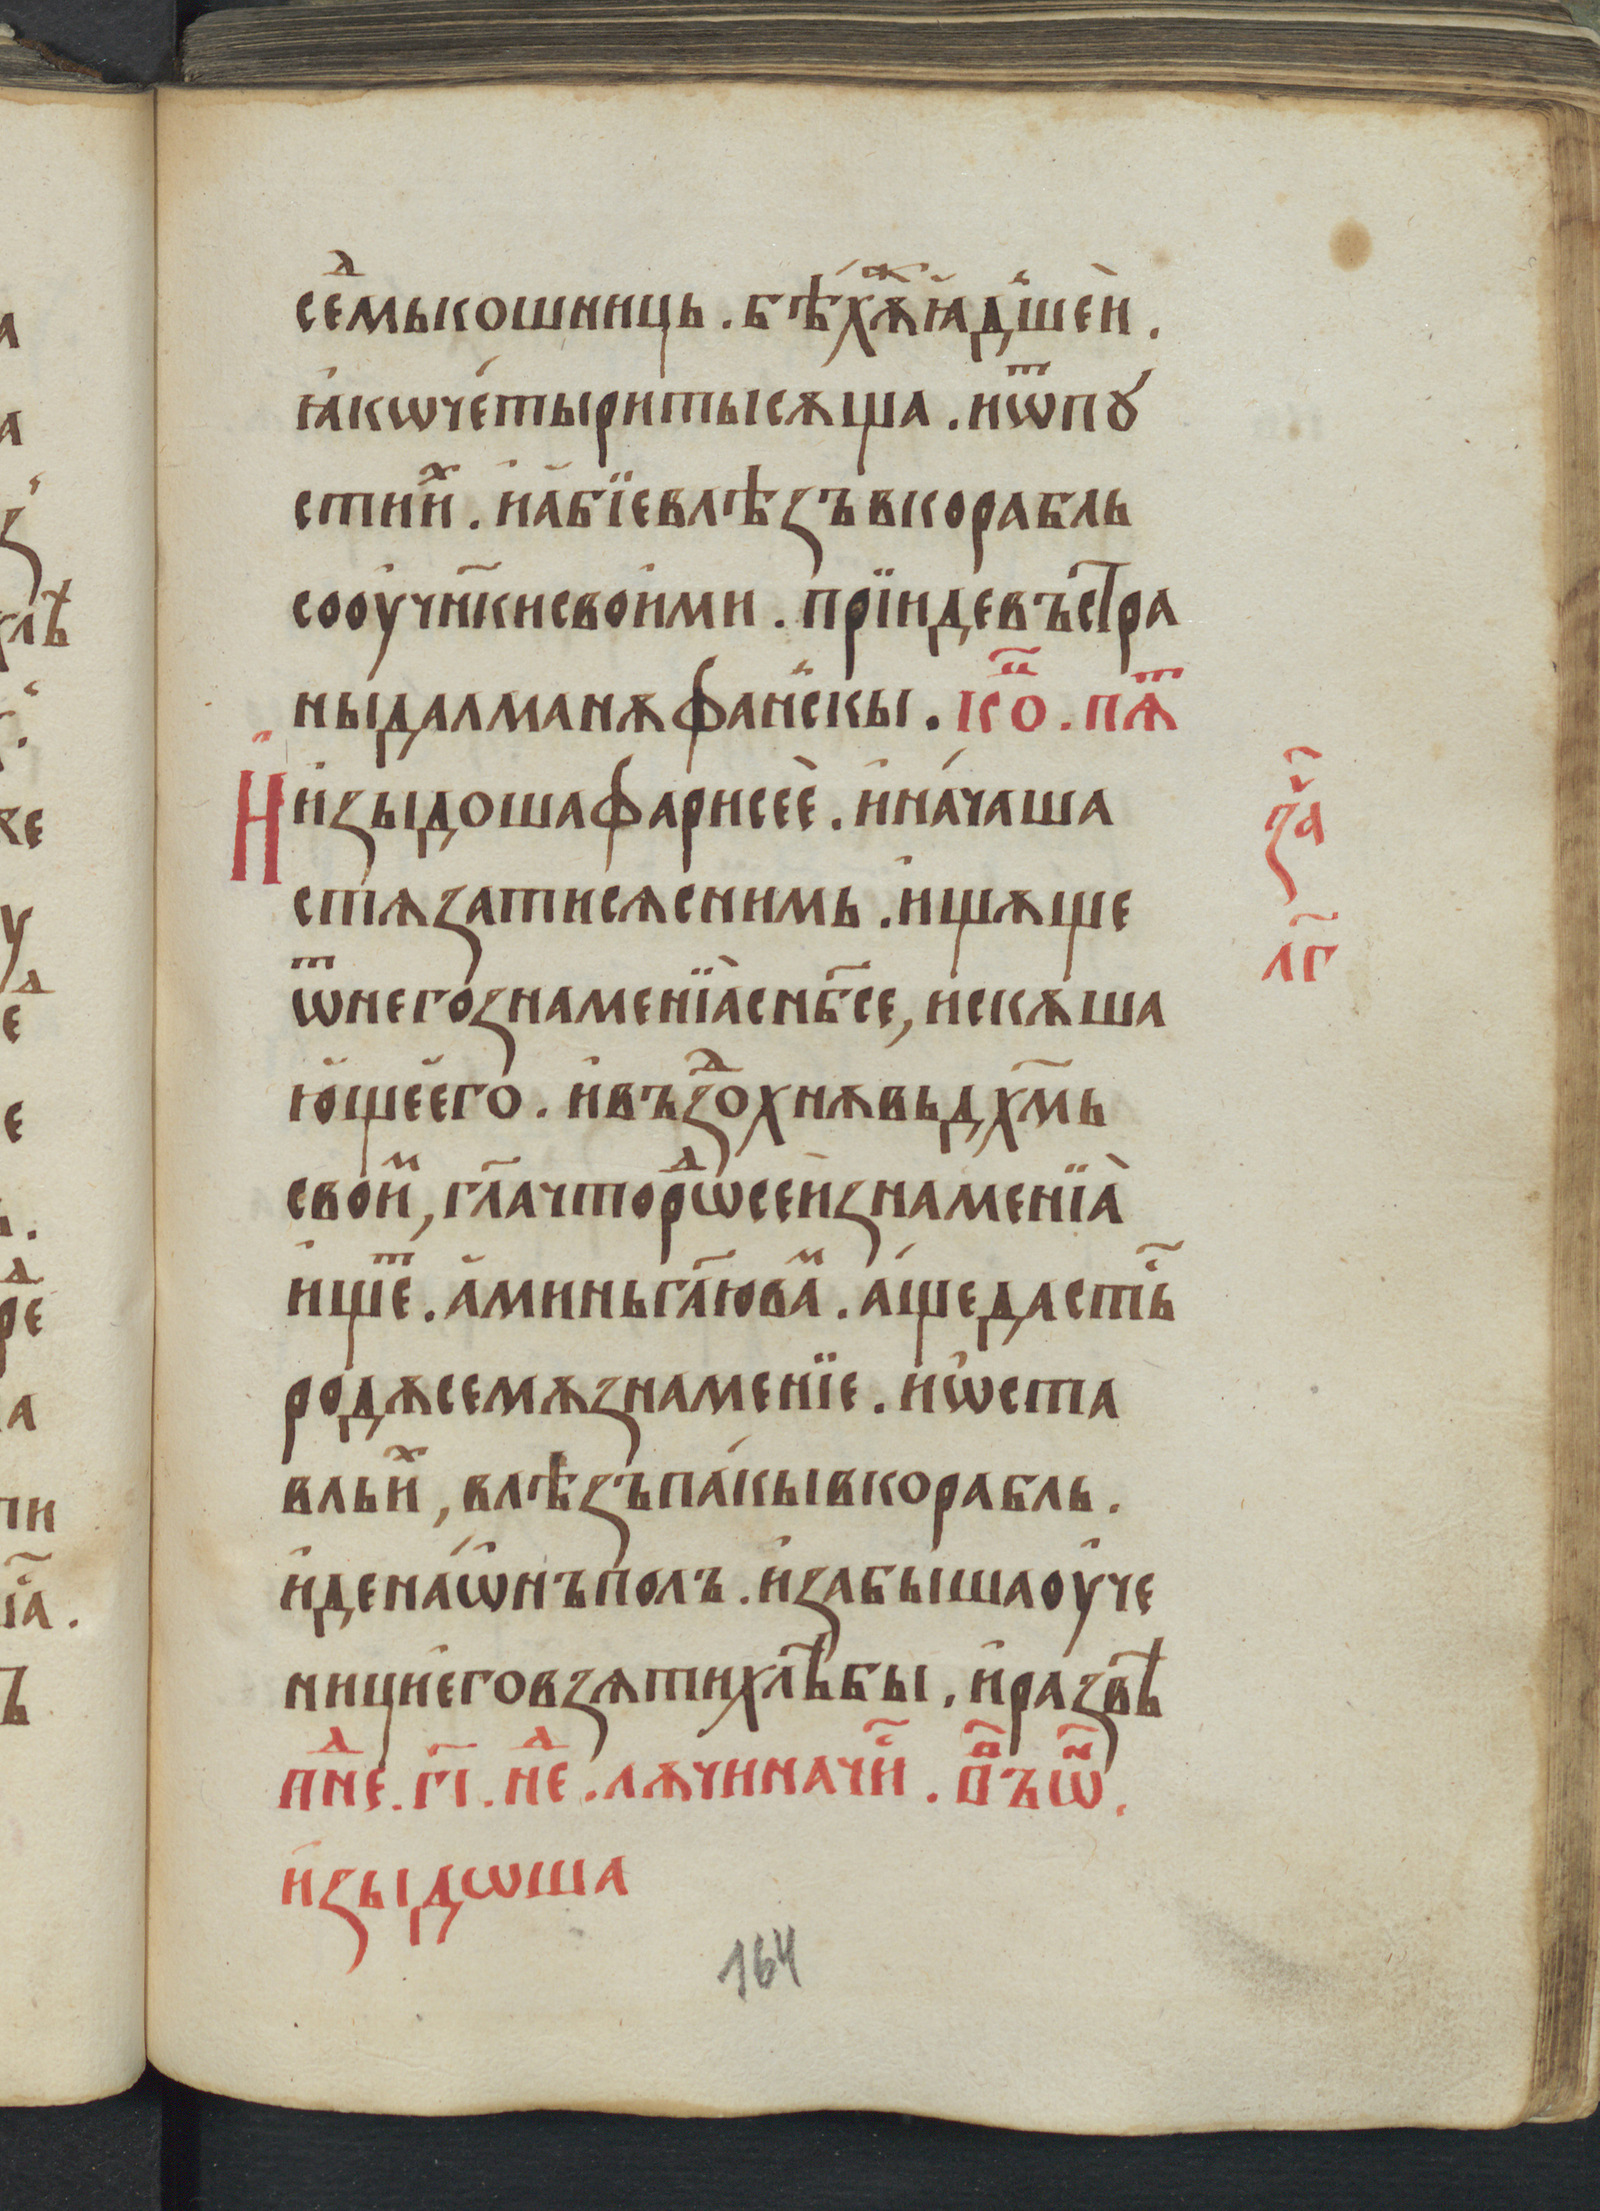 сеⷣмькошниць . бѣ́хѫⷤꙗ҆дш҆еѝ .
ꙗ҆кѡче́тыритысѧща . иѿпꙋ́
стиⷯи҆ . и҆а҆бїевлѣзъвкорабль
соо҆учн҃кисвои҆ми . прїи҆девъстра
ныдалманѫфанс҆кы . кѡⷩ҇ц . пѧⷮ
И҆и҆зыдошафарисеѐ . и҆на́чаша
стѧзатисѧснимь . и҆щѫще
ѿнегѡ҆знаменїа̀снб҃се , искѫша
ю҆щеего . и҆въздⷣохнѫвьдх҃мь
своиⷨ , гл҃ачторѡⷣсеѝзнаменїа̀
и҆щеⷮ . а҆миньгл҃юваⷨ . а҆́щедастьсѧ
родѫсемѫзнаменїе . и҆ѡ҆ста
вльиⷯ , влѣзъпа́кывкорабль .
и҆дена́ѡ҆нъполъ . и҆забышаоу҆че
нициегѡвзѧтихлѣбы . и҆развѣ
пнеⷣ . г҃і . неⷣ . лѫчиначи҃ . пⷬ҇въѡⷩ҇ .
и҆зыдѡша
за҃ч
л҃г
164